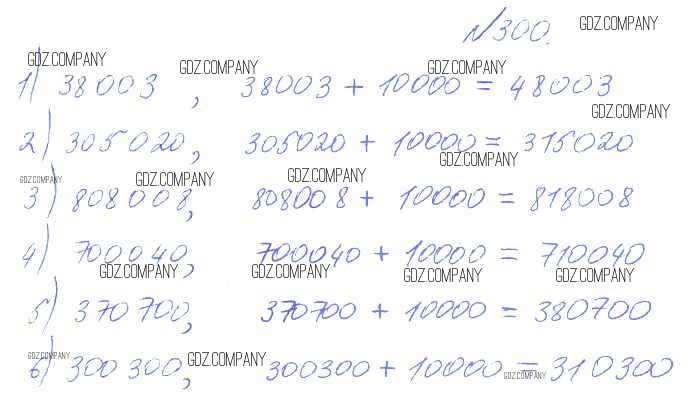 №300. GDZ.COMPANY
GDZ.COMPANY GDZ.COMPANY GDZ.COMPANY
1) 38003, 38003 + 10000 = 48003
GDZ.COMPANY
2) 305020, 305020 + 10000 = 315020
GDZ.COMPANY
GDZ.COMPANY GDZ.COMPANY GDZ.COMPANY
3) 808008, 808008 + 10000 = 818008
4) 700040, 700040 + 10000 = 710040
GDZ.COMPANY GDZ.COMPANY GDZ.COMPANY GDZ.COMPANY
5) 370700, 370700 + 10000 = 380700
GDZ.COMPANY GDZ.COMPANY
6) 300300, 300300 + 10000 = 310300
GDZ.COMPANY